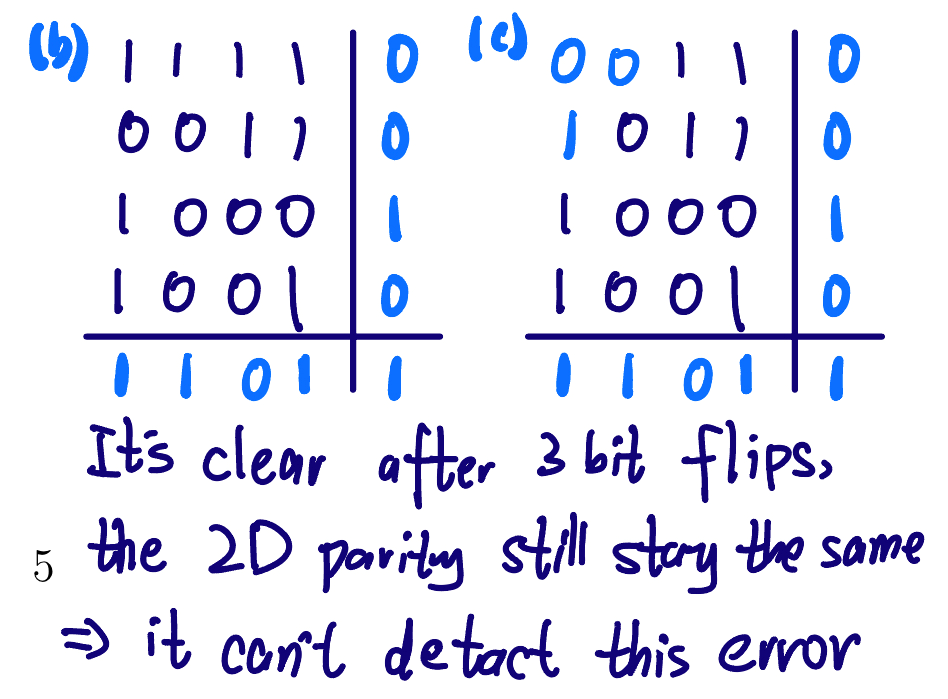 (b) 1 1 1 1 | 0 (c) 0 0 1 1 | 0
0 0 1 1 | 0 1 0 1 1 | 0
1 0 0 0 | 1 1 0 0 0 | 1
1 0 0 1 | 0 1 0 0 1 | 0
1 1 0 1 | 1 1 1 0 1 | 1
It's clear after 3 bit flips,
5 the 2D parity still stay the same
⇒ it can't detact this error